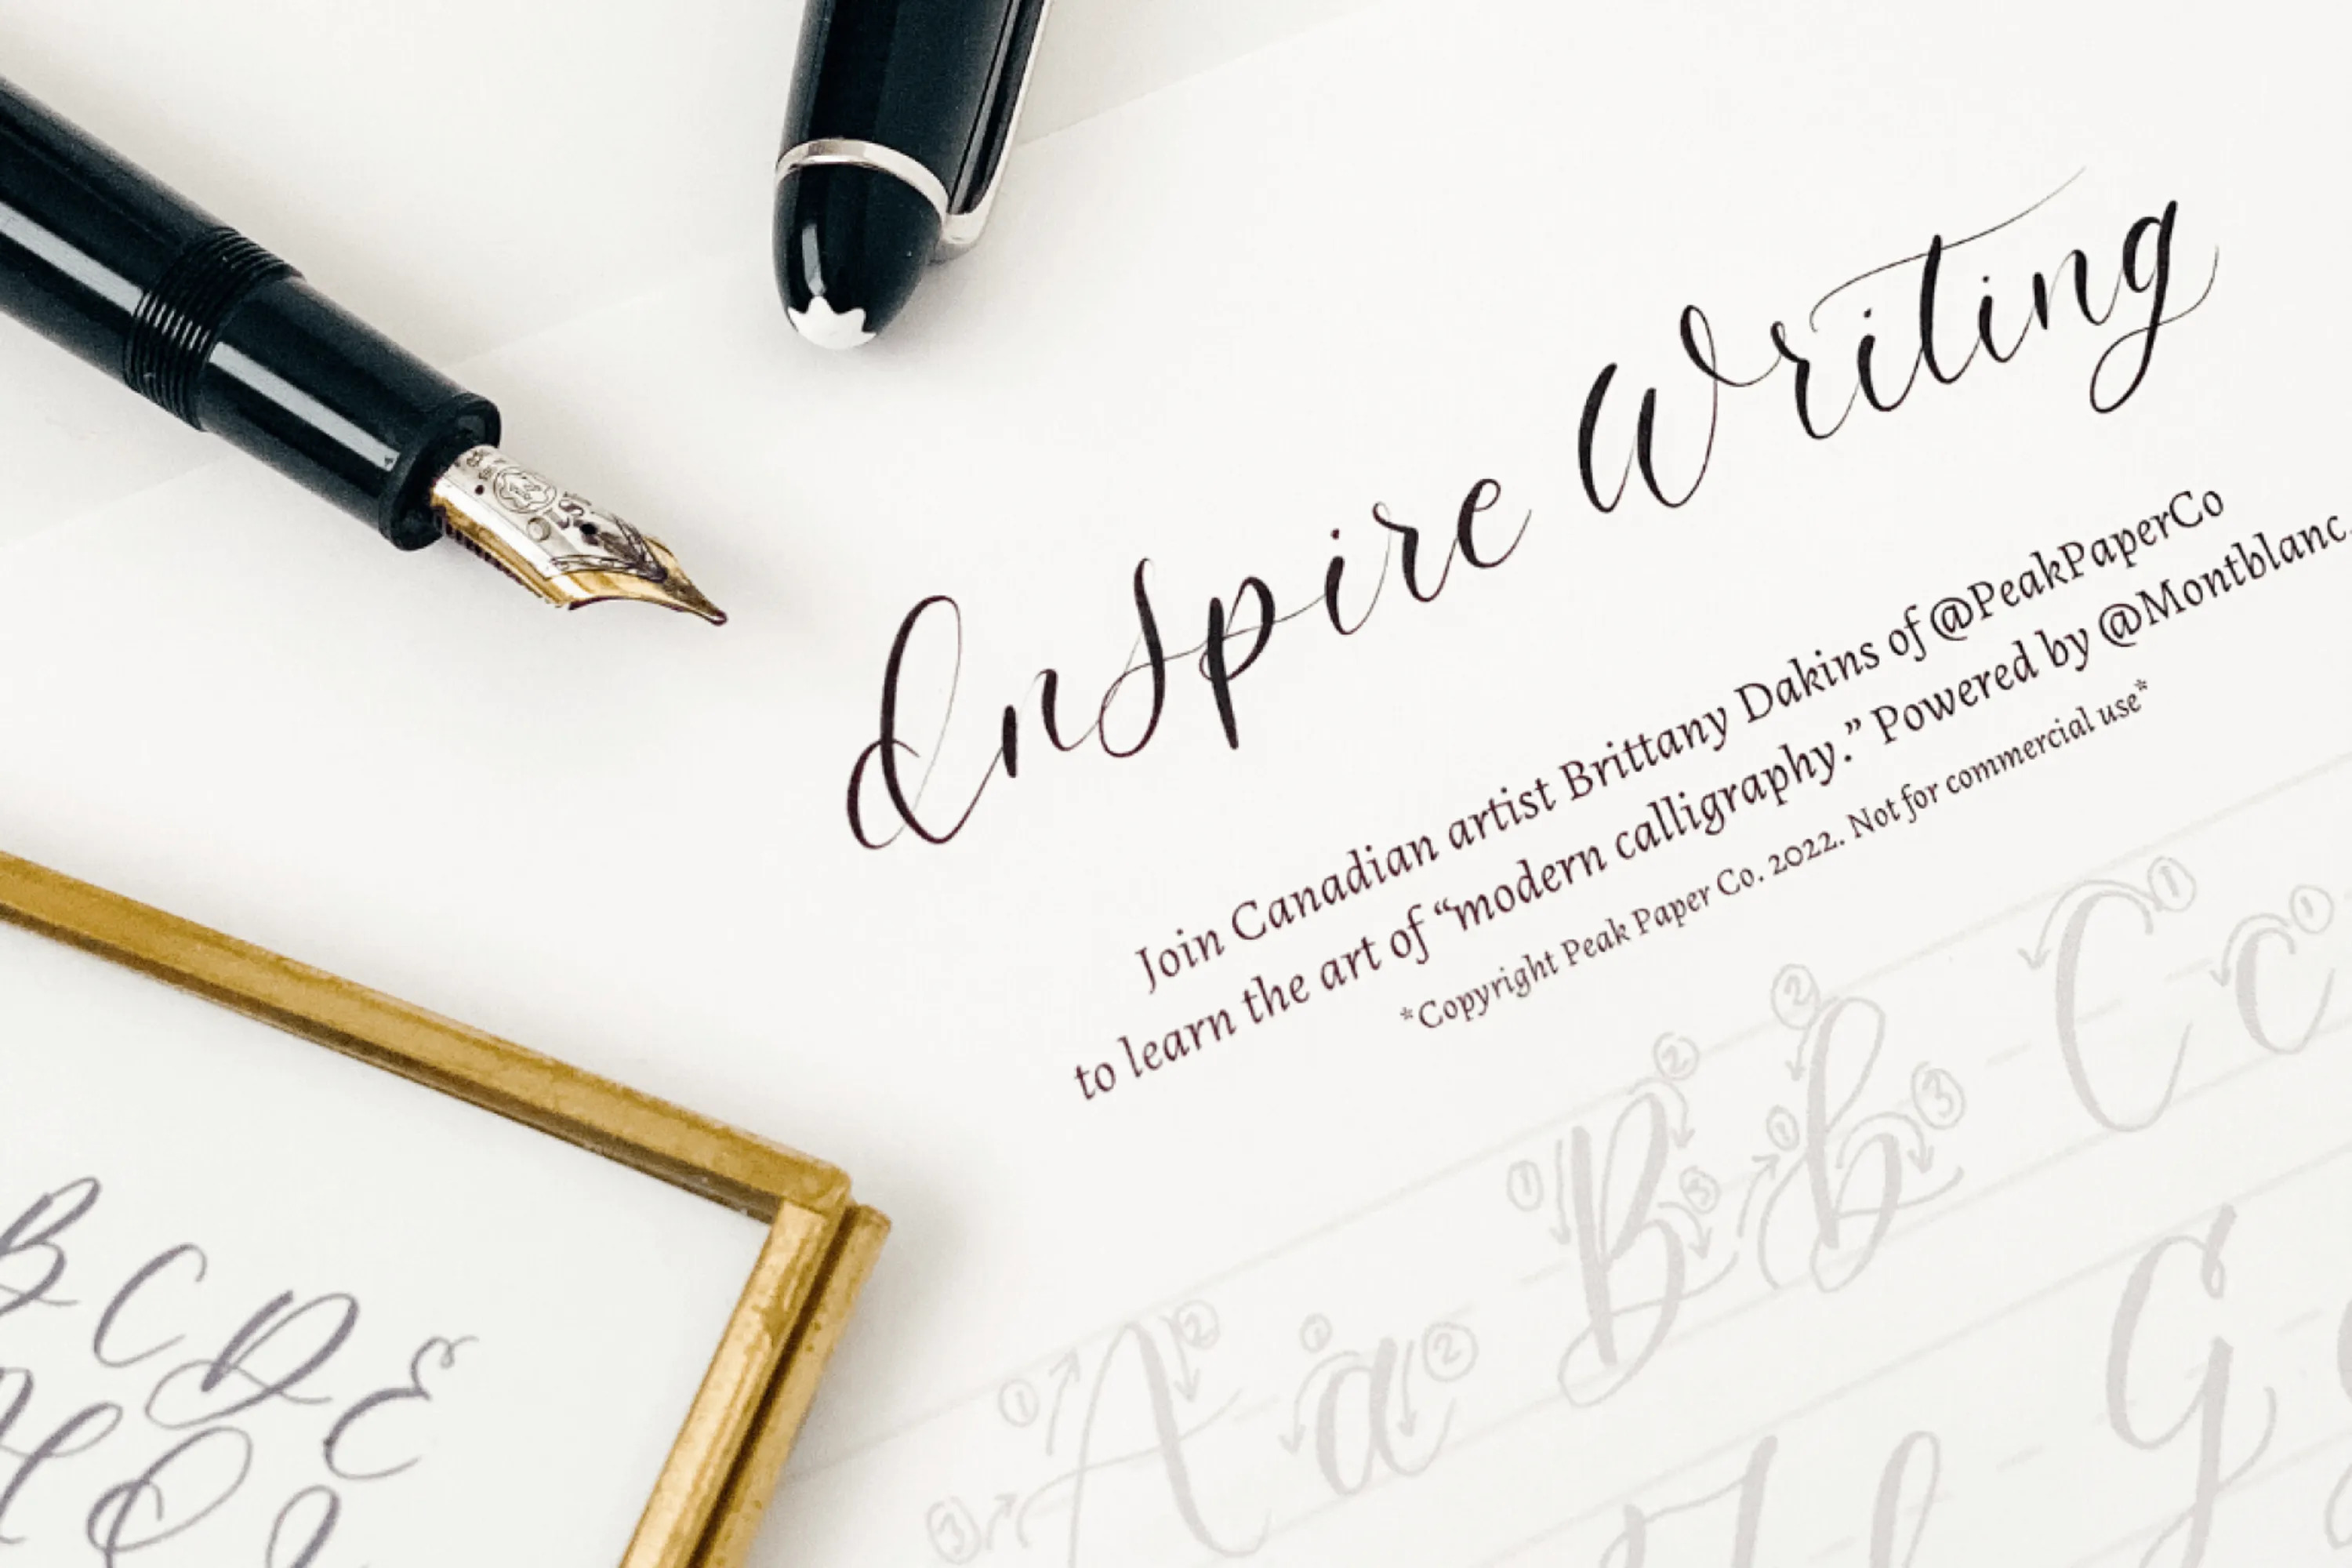 Inspire Writing
Join Canadian artist Brittany Dakins of @PeakPaperCo
to learn the art of “modern calligraphy.” Powered by @Montblanc.
*Copyright Peak Paper Co. 2022. Not for commercial use*
1 2 3 A 1 2 a 1 2 3 B 1 2 3 b 1 C 1 c
G
B C D E